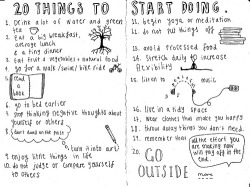 20 THINGS TO START DOING.
1. Drink lots of water and green
tea
2. Eat a big breakfast,
average lunch
& a tiny dinner
3. Eat fruits & vegetables + natural food
4. go for a walk / swim / bike ride
5. read
a
book
6. go to bed earlier
7. stop thinking negative thoughts about
yourself or others
8. don't dwell on the past
turn it into art!
9. enjoy little things in life
10. do not judge or compare yourself
to others
11. begin yoga or meditation
12. do not put things off
13. avoid processed food
14. Stretch daily to increase
flexibility
15. Listen to music
16. live in a tidy space
17. wear clothes that make you happy
18. throw away things you don't need
19. remember that
all the effort you
are making now
will pay off in the
end.
20. GO
OUTSIDE
more